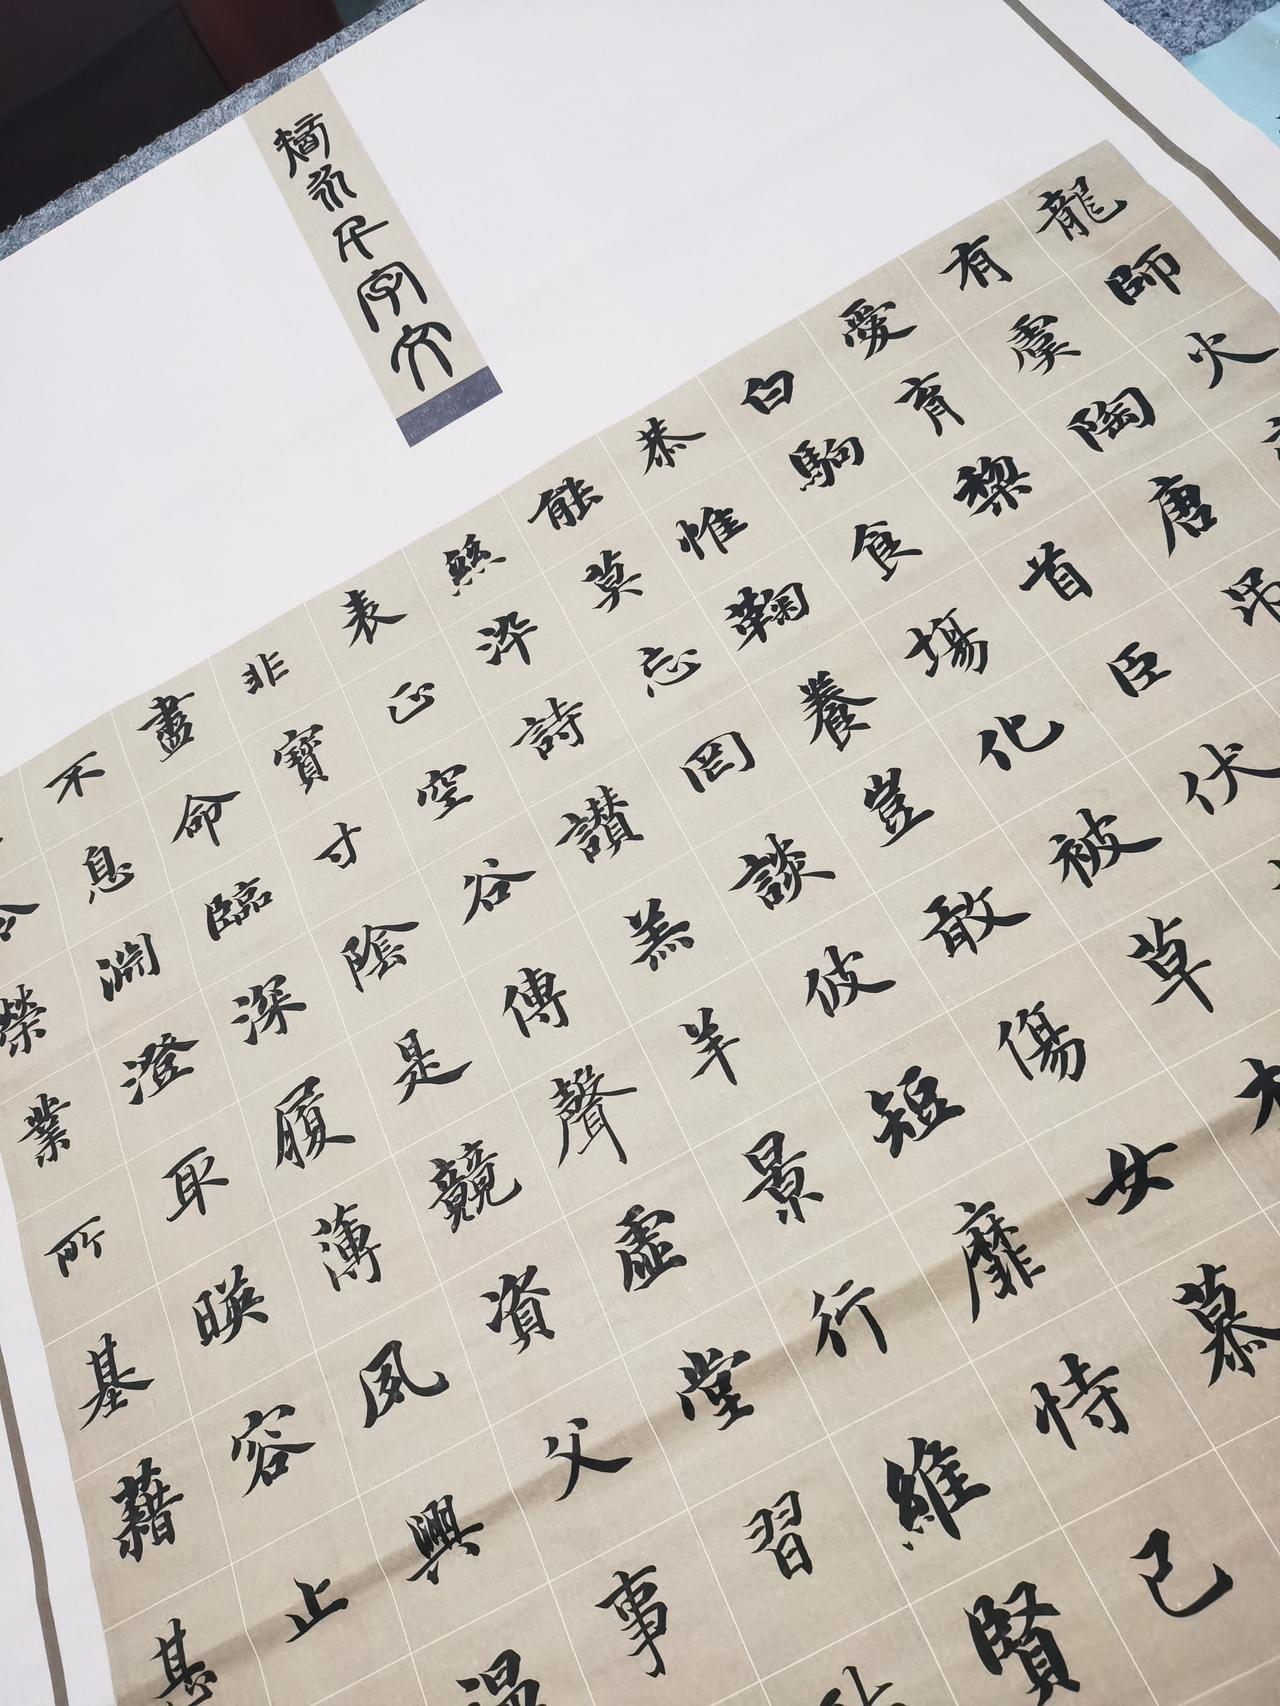 千字文
龍師火
有虞陶唐吊
愛育黎首臣伏
白駒食場化被草木
恭惟鞠養豈敢傷女慕
能莫忘罔談彼短靡恃己
絲染詩讃羔羊景行維賢
表正空谷傳聲虛堂習
非寶寸陰是競資父事
盡命臨深履薄夙興温
不息淵澄取暎容止
令榮業所基藉甚